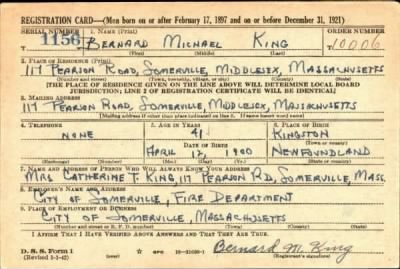 REGISTRATION CARD—(Men born on or after February 17, 1897 and on or before December 31, 1921)
SERIAL NUMBER 1. NAME (Print) ORDER NUMBER
1156 BERNARD MICHAEL KING 10006
(First) (Middle) (Last)
2. PLACE OF RESIDENCE (Print)
117 PEARSON ROAD, SOMERVILLE, MIDDLESEX, MASSACHUSETTS
(Number and street) (Town, township, village, or city) (County) (State)
[THE PLACE OF RESIDENCE GIVEN ON THE LINE ABOVE WILL DETERMINE LOCAL BOARD
JURISDICTION; LINE 2 OF REGISTRATION CERTIFICATE WILL BE IDENTICAL]
3. MAILING ADDRESS
117 PEARSON ROAD, SOMERVILLE, MIDDLESEX, MASSACHUSETTS
[Mailing address if other than place indicated on line 2. If same insert word same]
4. TELEPHONE 5. AGE IN YEARS 6. PLACE OF BIRTH
NONE 41 KINGSTON
DATE OF BIRTH (Town or county)
APRIL 17, 1900 NEWFOUNDLAND
(Exchange) (Number) (Mo.) (Day) (Yr.) (State or country)
7. NAME AND ADDRESS OF PERSON WHO WILL ALWAYS KNOW YOUR ADDRESS
MRS CATHERINE T. KING, 117 PEARSON RD, SOMERVILLE, MASS.
8. EMPLOYER'S NAME AND ADDRESS
CITY OF SOMERVILLE, FIRE DEPARTMENT
9. PLACE OF EMPLOYMENT OR BUSINESS
CITY OF SOMERVILLE, MASSACHUSETTS
(Number and street or R. F. D. number) (Town) (County) (State)
I AFFIRM THAT I HAVE VERIFIED ABOVE ANSWERS AND THAT THEY ARE TRUE.
D. S. S. Form 1 Bernard M. King
(Revised 1-1-42) (Registrant's signature)